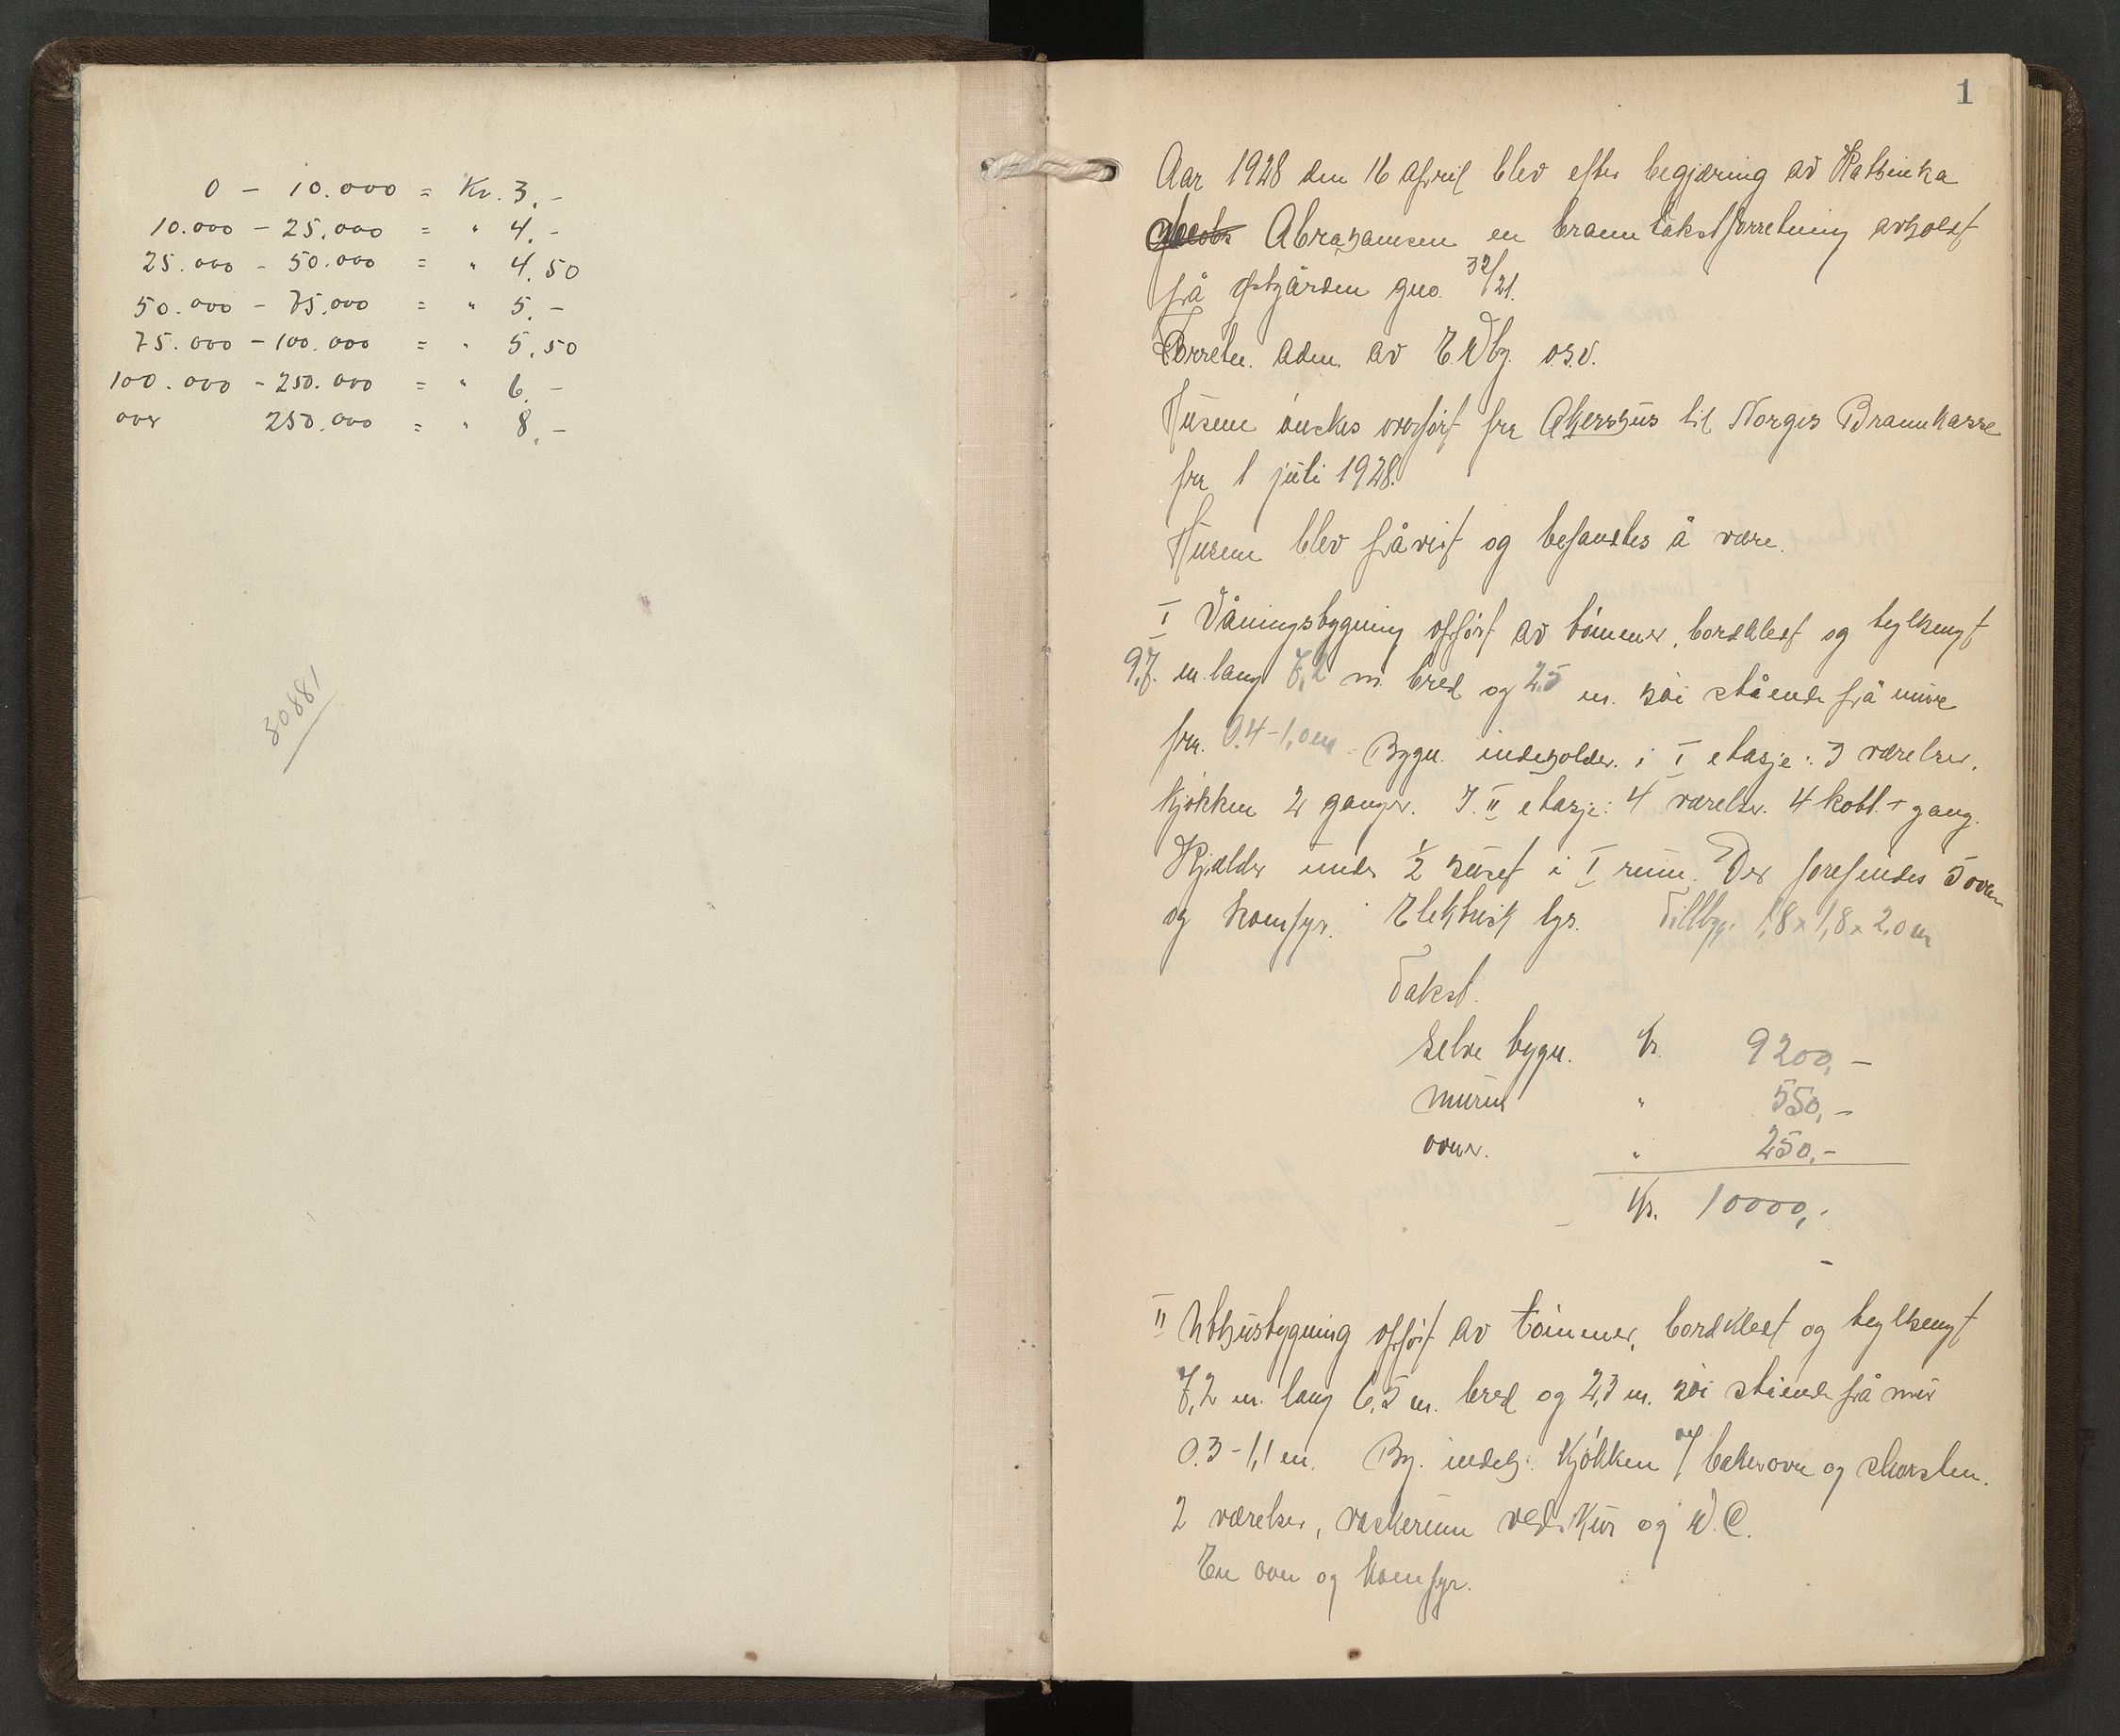 0 - 10.000 = Kr. 3.-
10.000 - 25.000 = " 4.-
25.000 - 50.000 = " 4.50
50.000 - 75.000 = " 5.-
75.000 - 100.000 = " 5.50
100.000 - 250.000 = " 6.-
over 250.000 = " 8.-
30881
1
Aar 1928 den 16 april blev efter begjæring av Kathinka
Abrahamsen en branntakstforretning avholdt
på gno. 32/21.
Forretn. adm. av osv.
Husene ønskes overført fra Akershus til Norges Brannkasse
fra 1 juli 1928.
Husene blev påvist og befandtes å være.
I Våningsbygning opført av tømmer, bordklædt og teglhengt
9,7. m. lang 7,2 m. bred og 2,5 m. høi stående på mure
fra. 0.4-1,0 m Bygn. indeholder. i I etasje: 3 værelser.
kjøkken 2 ganger. I. II etasje: 4 værelser. 4 kott. + gang.
Kjælder under 1/2 huset i I rum. Der forefindes 5 ovner
og komfyr. Elektrisk lys. Tillbyg. 1,8 x 1,8 x 2,0 m
Takst.
Selve bygn. kr. 9200,-
murene " 550,-
ovner. " 250,-
Kr. 10000,-
II Uthusbygning opført av tømmer, bordklædt og teglhengt
7,2 m. lang 6,5 m. bred og 2,3 m. høi stående på mur
0.3-1,1 m. By. indeh. kjøkken m/ bakerovn og skorsten.
2 værelser, vaskerum vedskur og W.C.
En ovn og komfyr.